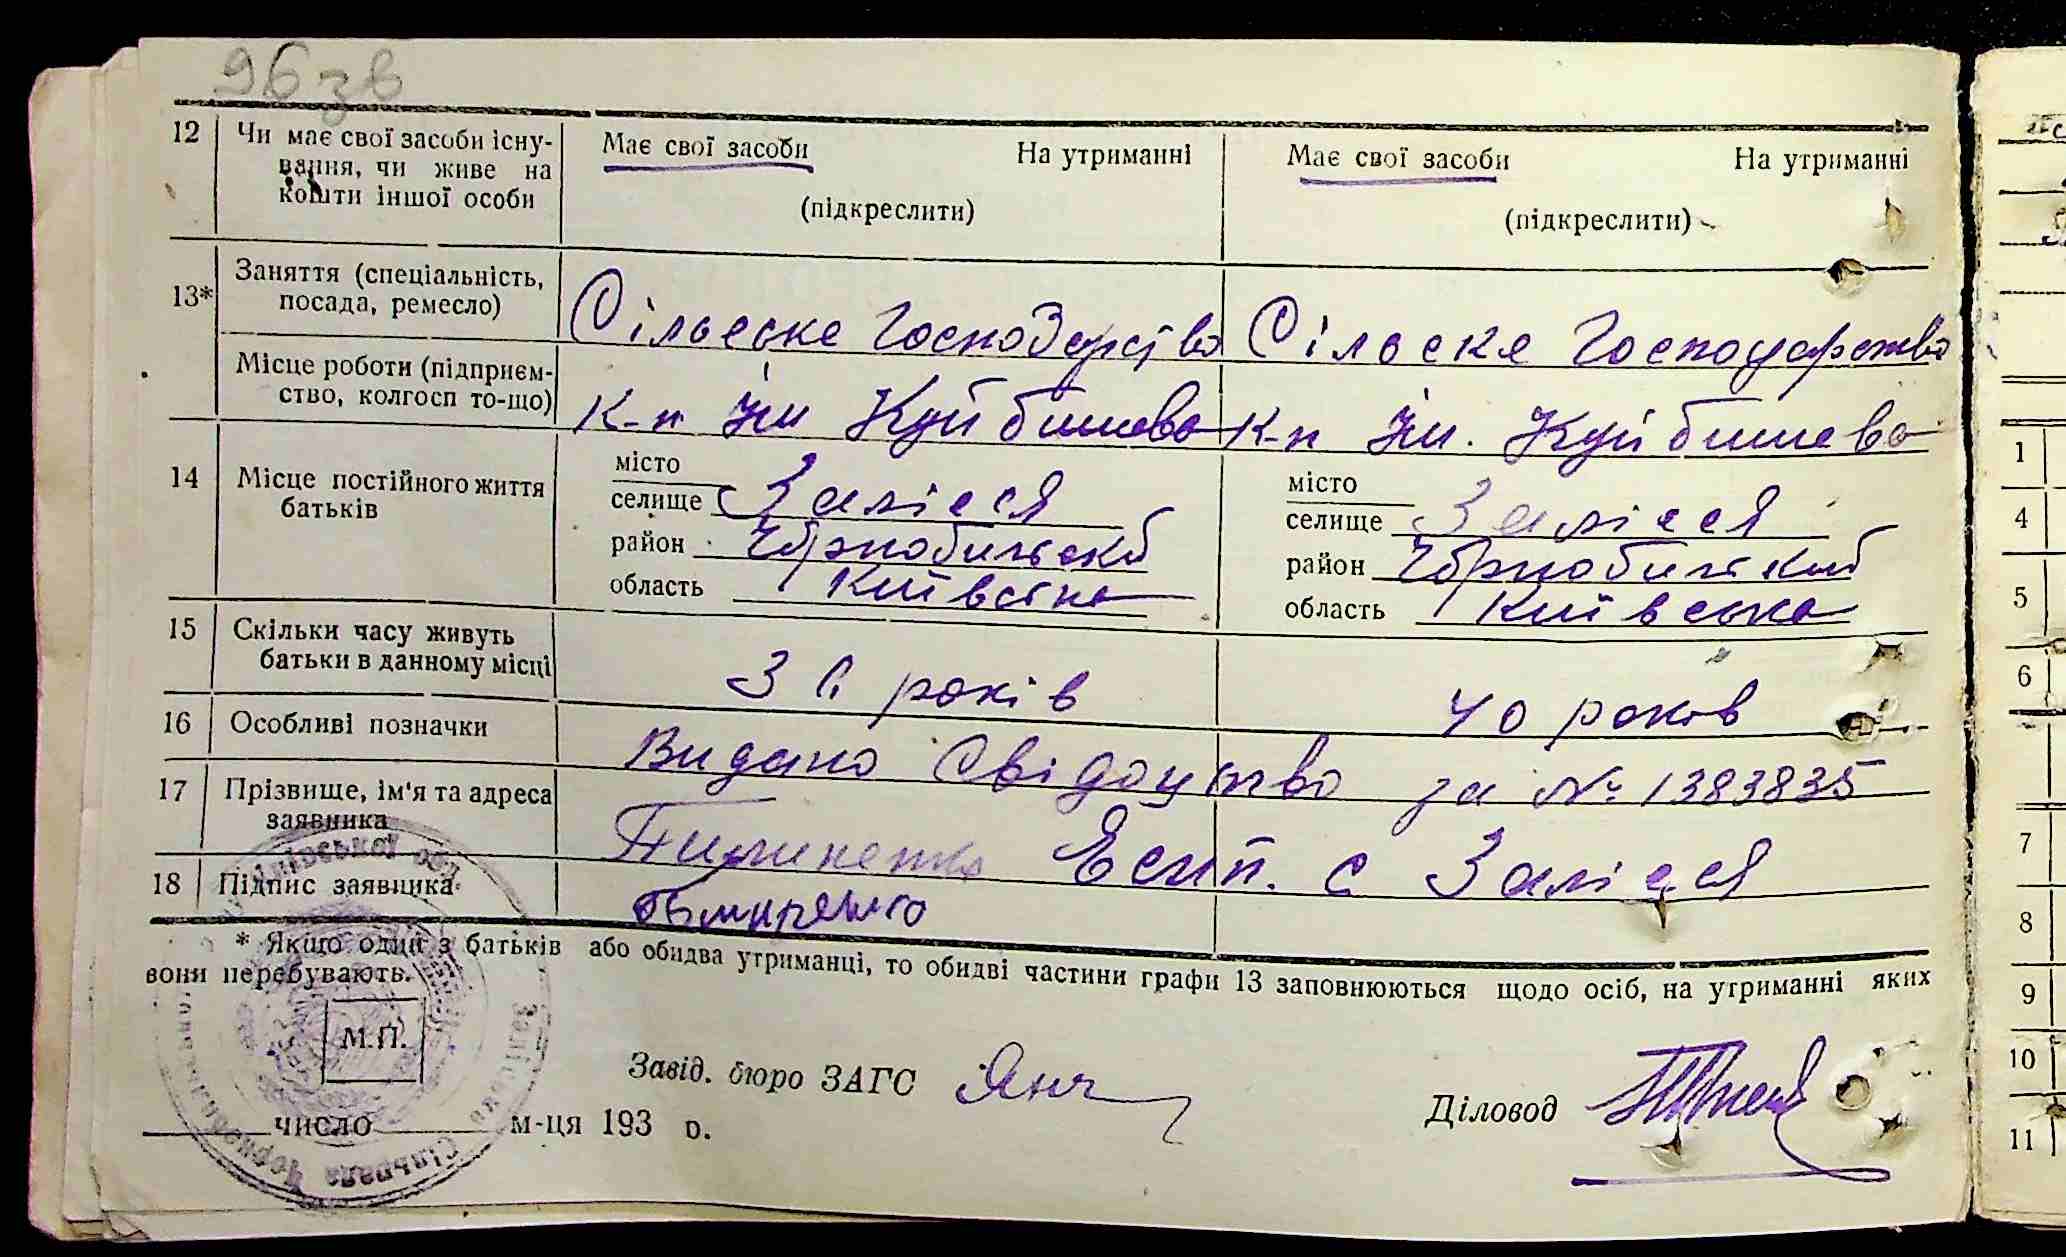 96 зв
12 Чи має свої засоби існу- Має свої засоби На утриманні Має свої засоби На утриманні
вання, чи живе на
кошти іншої особи (підкреслити) (підкреслити)
13* Заняття (спеціальність,
посада, ремесло) Сільське Господарство Сільске Господарство
Місце роботи (підприєм-
ство, колгосп то-що) К-п Ім Куйбишева К-п Ім. Куйбишева
14 Місце постійного життя місто місто
батьків селище Залісся селище Залісся
район Чорнобильскб район Чорнобильский
область Київська область Київська
15 Скільки часу живуть
батьки в данному місці 36 років 40 років
16 Особливі позначки Видано Свідоцтво за № 1383835
17 Прізвище, ім'я та адреса
заявника Есип. с Залісся
18 Підпис заявника
* Якщо один з батьків або обидва утриманці, то обидві частини графи 13 заповнюються щодо осіб, на утриманні яких
вони перебувають.
М.П.
Завід. бюро ЗАГС
Діловод
число м-ця 193 о.
Київської обл
Заліська Сільрада
1
4
5
6
7
8
9
10
11